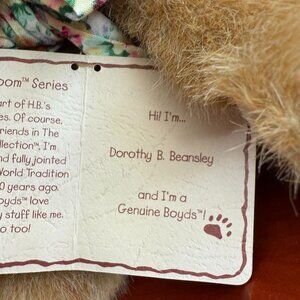 oom™ Series
art of H.B.'s
es. Of course,
riends in The
llection™, I'm
nd fully jointed
World Tradition
0 years ago.
oyds™ love
y stuff like me.
o too!
Hi! I'm...
Dorothy B. Beansley
and I'm a
Genuine Boyds™!